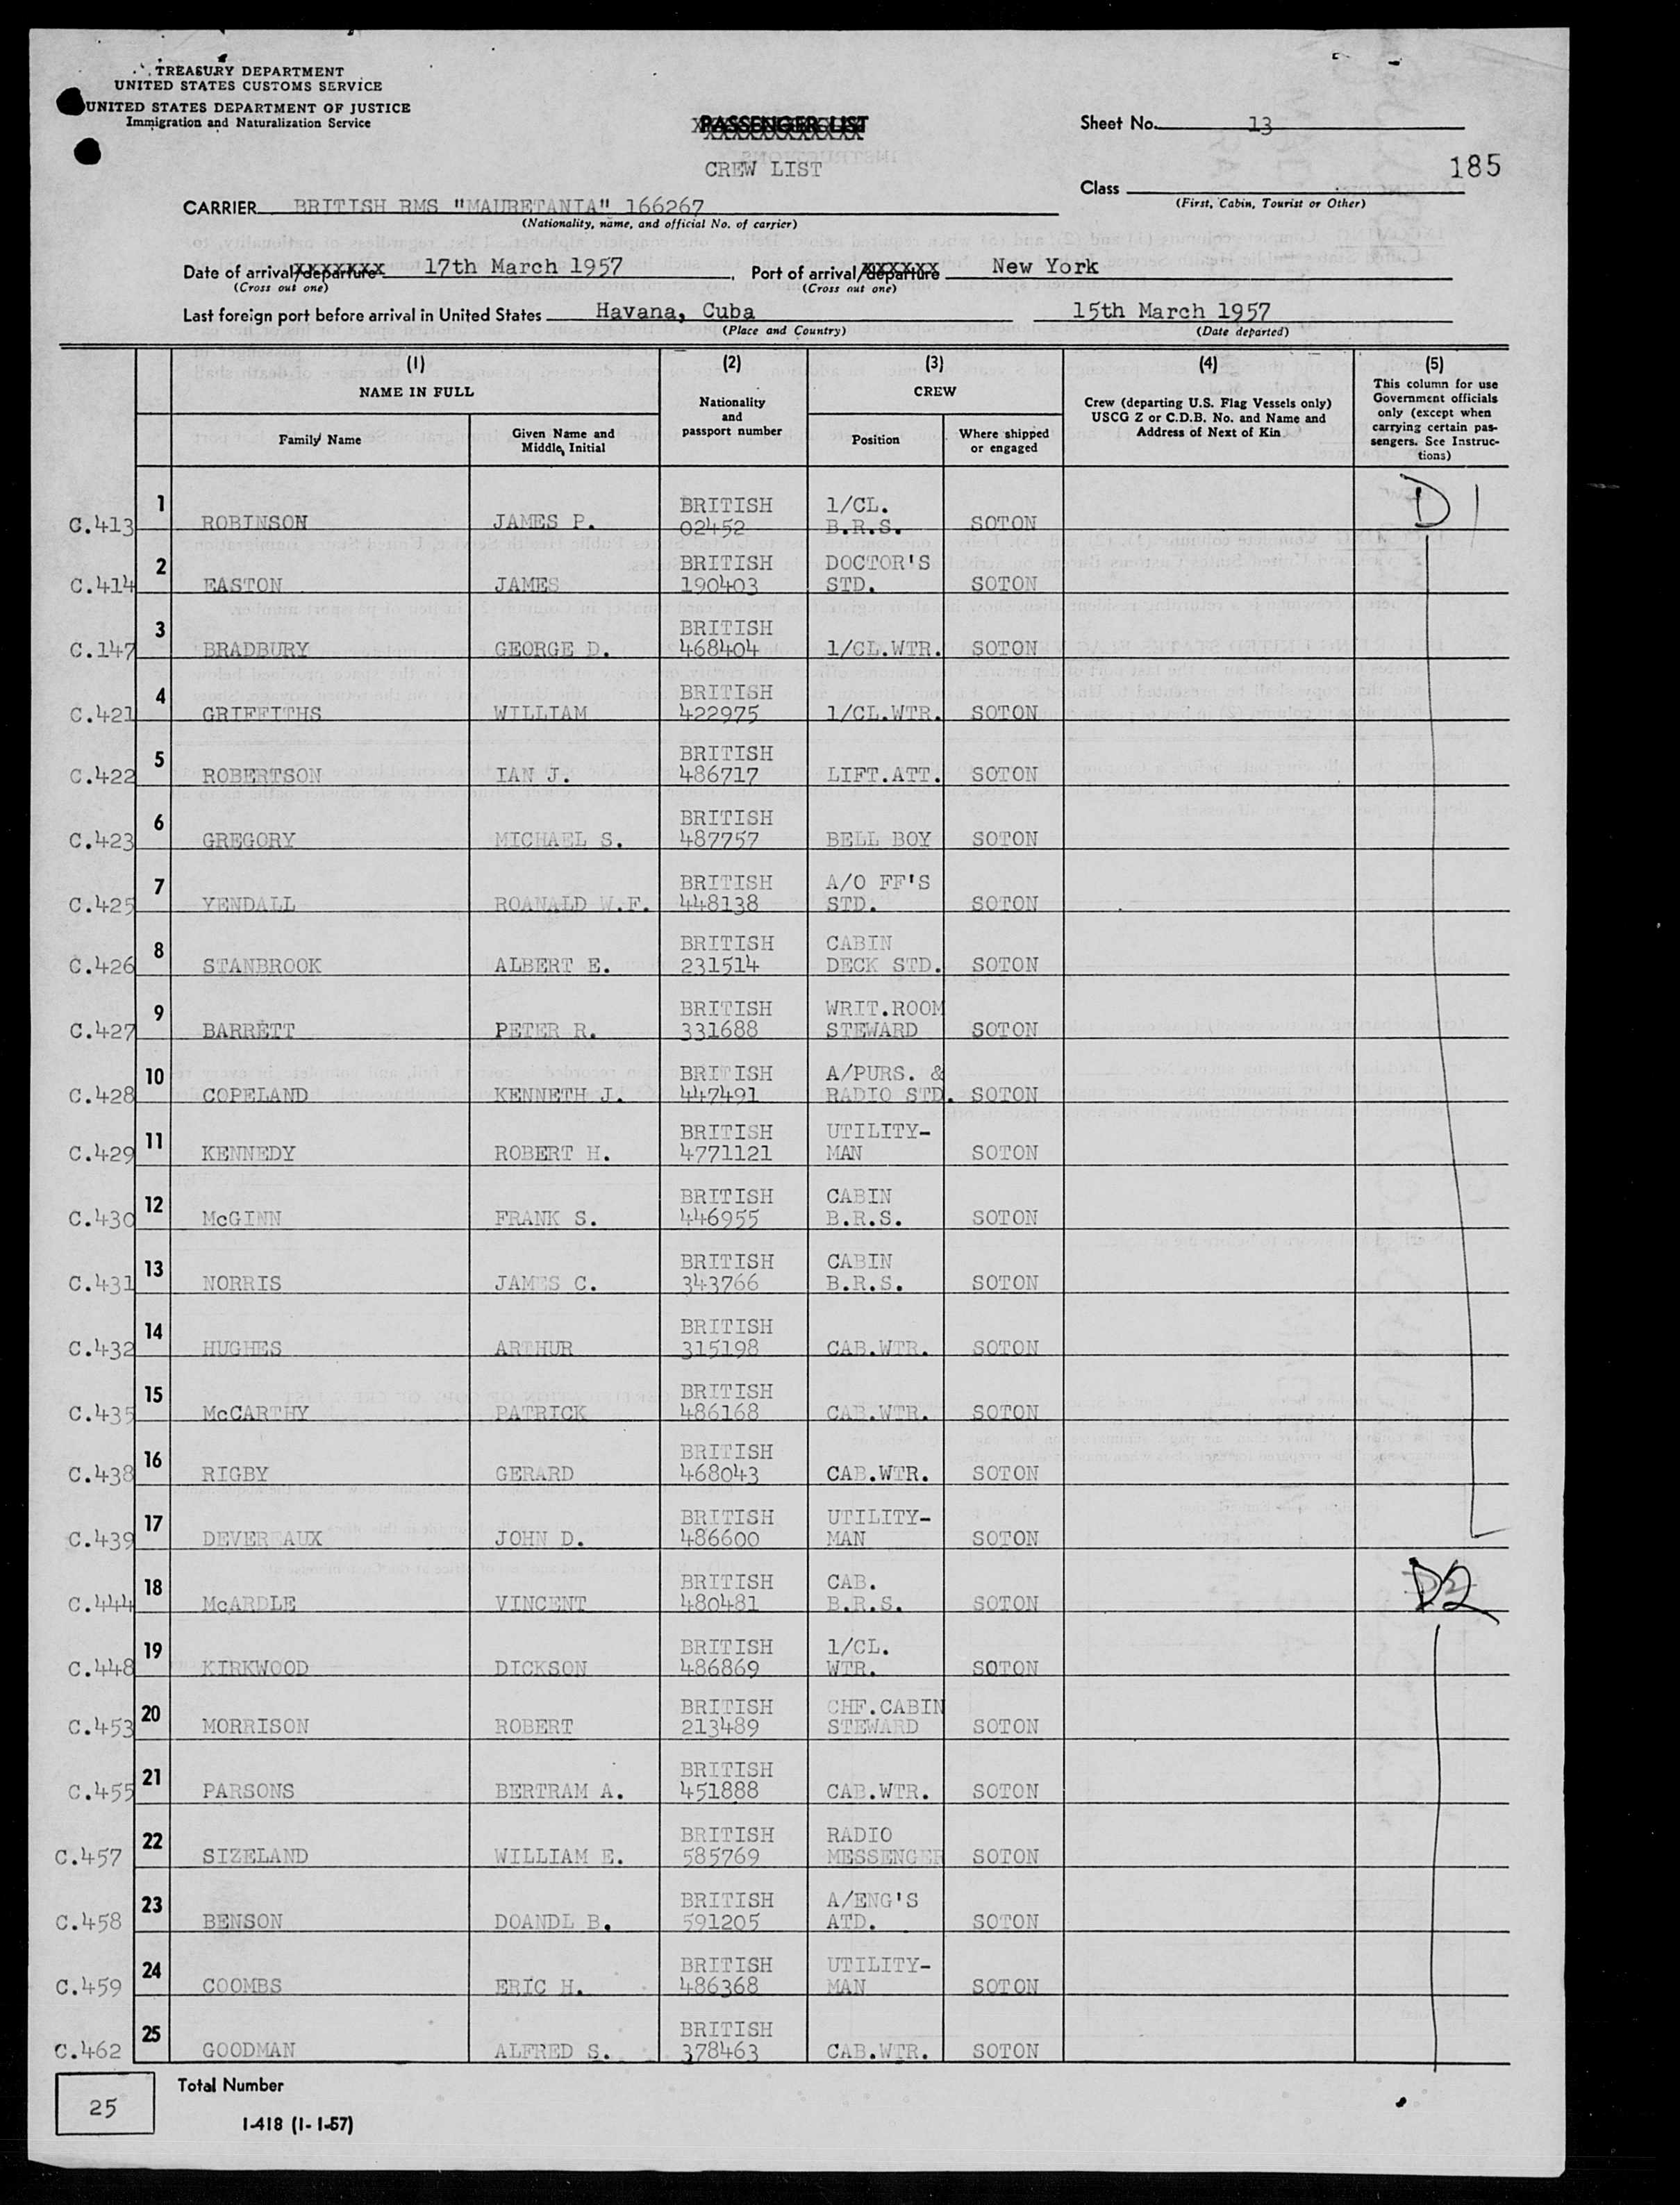 TREASURY DEPARTMENT
UNITED STATES CUSTOMS SERVICE
UNITED STATES DEPARTMENT OF JUSTICE
Immigration and Naturalization Service
PASSENGER LIST
CREW LIST
Sheet No. 13
185
Class
(First, Cabin, Tourist or Other)
CARRIER BRITISH RMS "MAURETANIA" 166267
(Nationality, name, and official No. of carrier)
Date of arrival/departure 17th March 1957, Port of arrival/departure New York
(Cross out one) (Cross out one)
Last foreign port before arrival in United States Havana, Cuba 15th March 1957
(Place and Country) (Date departed)
(1) (2) (3) (4) (5)
NAME IN FULL
Family Name
Given Name and Middle Initial
Nationality and passport number
CREW
Position
Where shipped or engaged
Crew (departing U.S. Flag Vessels only) USCG Z or C.D.B. No. and Name and Address of Next of Kin
This column for use Government officials only (except when carrying certain passengers. See Instructions)
C.413 1 ROBINSON JAMES P. BRITISH 02452 1/CL. B.R.S. SOTON D1
C.414 2 EASTON JAMES BRITISH 190403 DOCTOR'S STD. SOTON
C.147 3 BRADBURY GEORGE D. BRITISH 468404 1/CL.WTR. SOTON
C.421 4 GRIFFITHS WILLIAM BRITISH 422975 1/CL.WTR. SOTON
C.422 5 ROBERTSON IAN J. BRITISH 486717 LIFT.ATT. SOTON
C.423 6 GREGORY MICHAEL S. BRITISH 487757 BELL BOY SOTON
C.425 7 YENDALL ROANALD W.F. BRITISH 448138 A/O FF'S STD. SOTON
C.426 8 STANBROOK ALBERT E. BRITISH 231514 CABIN DECK STD. SOTON
C.427 9 BARRETT PETER R. BRITISH 331688 WRIT.ROOM STEWARD SOTON
C.428 10 COPELAND KENNETH J. BRITISH 447491 A/PURS. & RADIO STD. SOTON
C.429 11 KENNEDY ROBERT H. BRITISH 4771121 UTILITY-MAN SOTON
C.430 12 McGINN FRANK S. BRITISH 446955 CABIN B.R.S. SOTON
C.431 13 NORRIS JAMES C. BRITISH 343766 CABIN B.R.S. SOTON
C.432 14 HUGHES ARTHUR BRITISH 315198 CAB.WTR. SOTON
C.435 15 McCARTHY PATRICK BRITISH 486168 CAB.WTR. SOTON
C.438 16 RIGBY GERARD BRITISH 468043 CAB.WTR. SOTON
C.439 17 DEVEREAUX JOHN D. BRITISH 486600 UTILITY-MAN SOTON
C.444 18 McARDLE VINCENT BRITISH 480481 CAB. B.R.S. SOTON D2
C.448 19 KIRKWOOD DICKSON BRITISH 486869 1/CL. WTR. SOTON
C.453 20 MORRISON ROBERT BRITISH 213489 CHF.CABIN STEWARD SOTON
C.455 21 PARSONS BERTRAM A. BRITISH 451888 CAB.WTR. SOTON
C.457 22 SIZELAND WILLIAM E. BRITISH 585769 RADIO MESSENGER SOTON
C.458 23 BENSON DOANDL B. BRITISH 591205 A/ENG'S ATD. SOTON
C.459 24 COOMBS ERIC H. BRITISH 486368 UTILITY-MAN SOTON
C.462 25 GOODMAN ALFRED S. BRITISH 378463 CAB.WTR. SOTON
25 Total Number
I-418 (1-1-57)